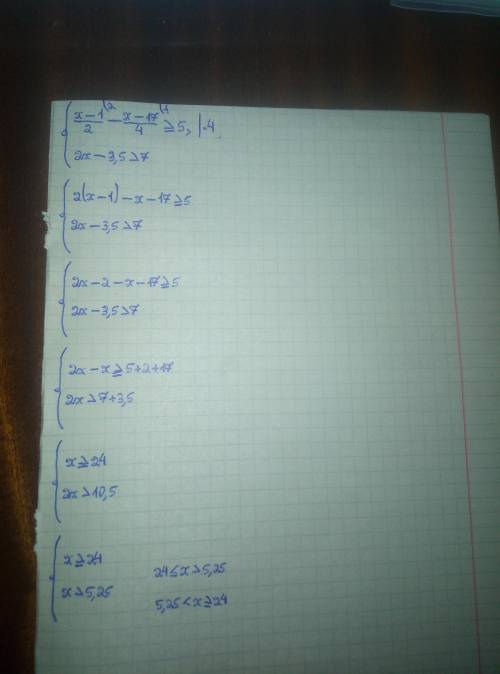 { (x-1)/2 ⁽² - (x-17)/4 ⁽¹ ≥ 5, |·4
2x-3,5>7
{ 2(x-1)-x-17≥5
2x-3,5>7
{ 2x-2-x-17≥5
2x-3,5>7
{ 2x-x≥5+2+17
2x>7+3,5
{ x≥24
2x>10,5
{ x≥24
x>5,25
24≤x>5,25
5,25<x≥24